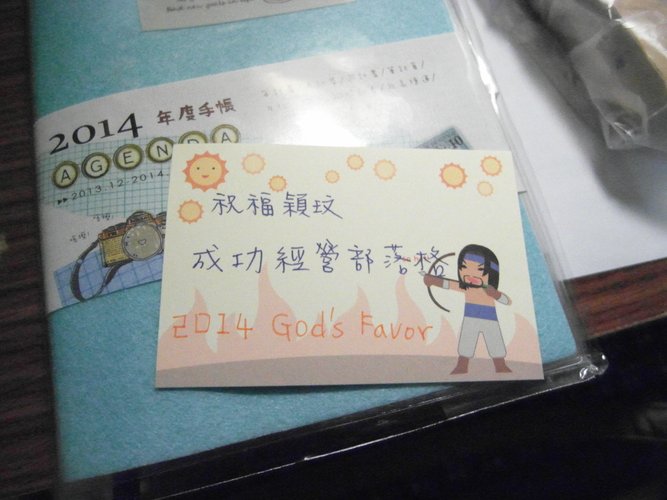 2014 年度手帳
AGENDA
2013.12-2014.
10
祝福穎玟
成功經營部落格
2014 God's Favor